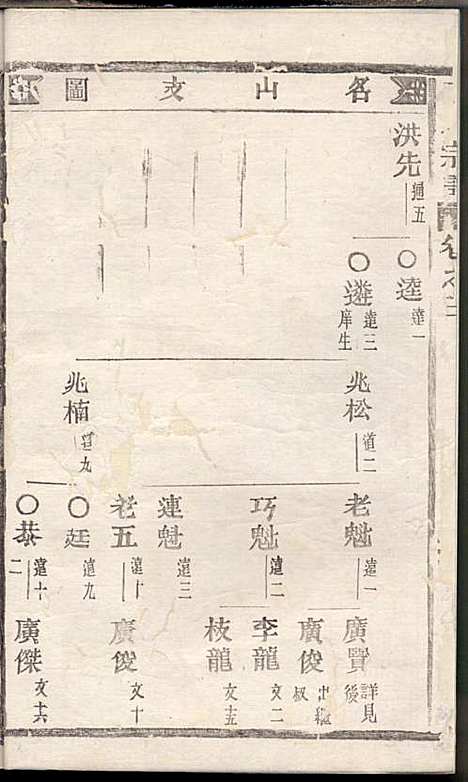 名山支圖
宗譜
卷之二
洪先
通五
〇逵
達一
〇遴
達三
庠生
兆松
道二
兆楠
道九
老魁
遠一
巧魁
遠二
連魁
遠三
〇廷
遠九
老五
遠十
〇恭
遠十二
廣賢
詳見後
廣俊
出繼叔
李龍
文二
枝龍
文十五
廣俊
文十
廣傑
文十六